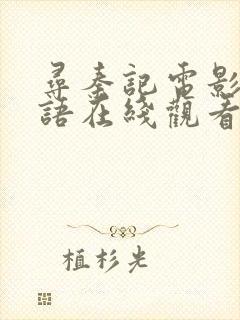 尋秦記電影
語在綫觀看
植杉光